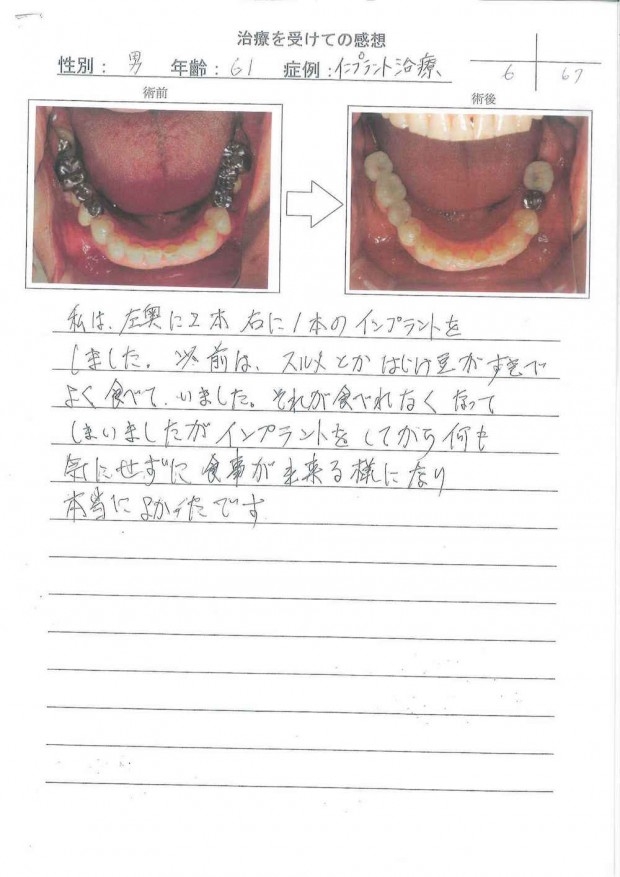 治療を受けての感想
性別： 男 年齢： 61 症例：インプラント治療
6 67
術前
術後
私は、左奥に2本 右に1本のインプラントを
しました。以前は、スルメとかはじけ豆がすきで
よく食べて、いました。それが食べれなくなって
しまいましたがインプラントをしてから何も
気にせずに食事が出来る様になり
本当によかったです